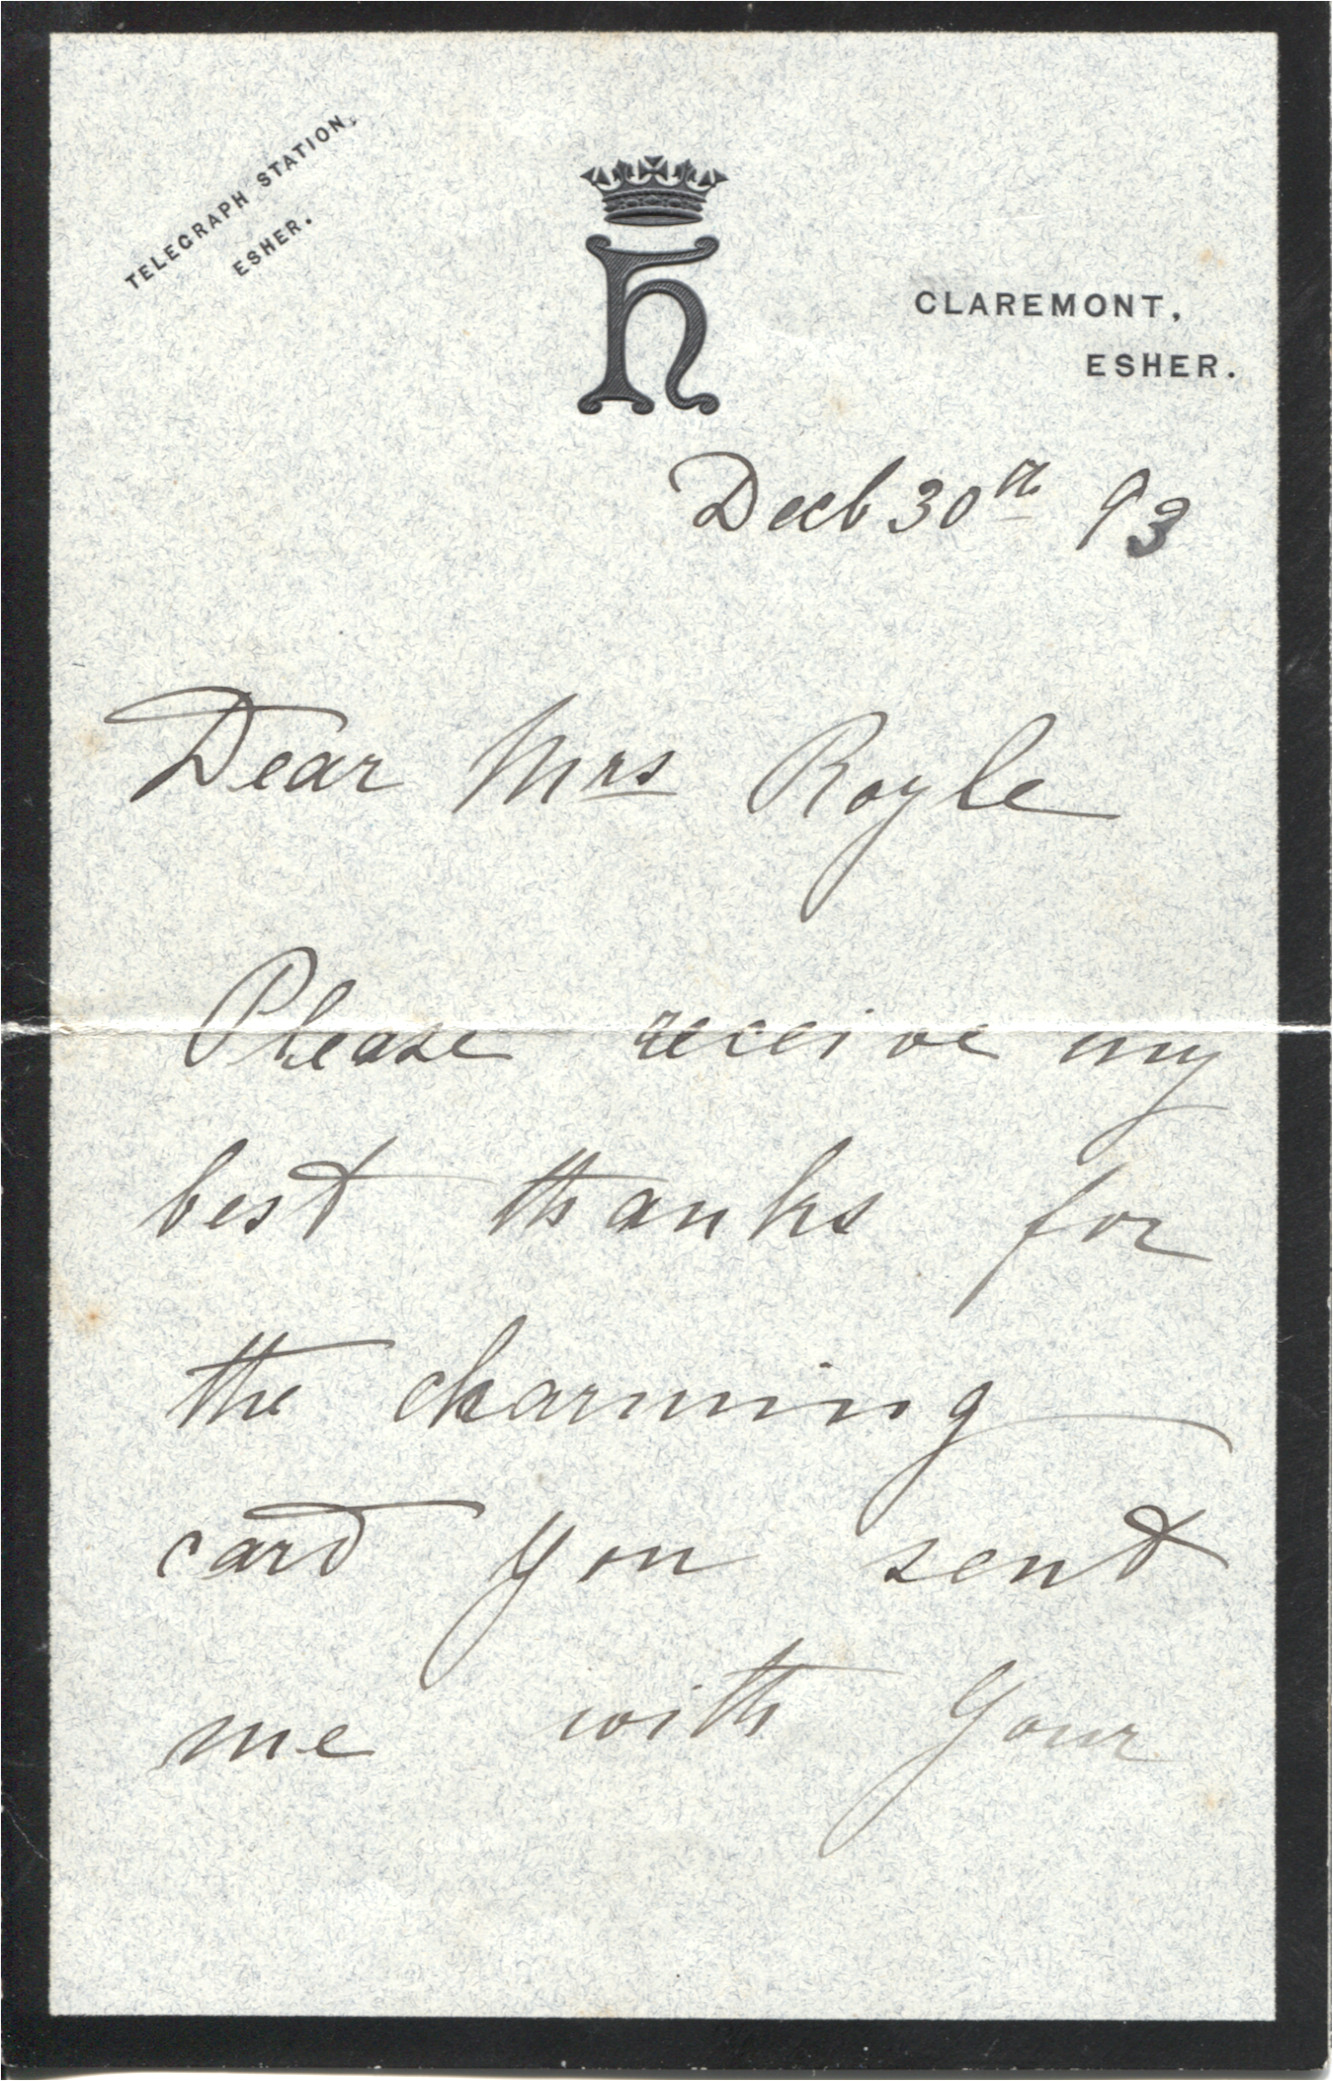 TELEGRAPH STATION,
ESHER.
h
CLAREMONT,
ESHER.
Decb 30th 93
Dear Mrs Royle
Please receive my
best thanks for
the charming
card you sent
me with your